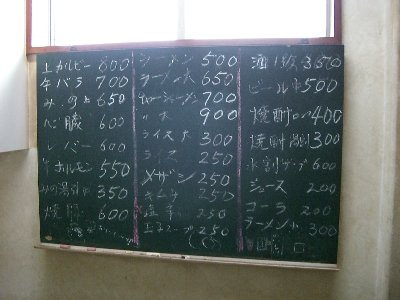 上カルビー 800
牛バラ 700
みのと 650
心臓 600
レバー 600
牛ホルモン 550
みの湯引 350
焼豚 600
ラーメン 500
ラーメン大 650
チャーシューメン 700
〃 大 900
ライス大 300
ライス 250
メザシ 250
キムチ 250
250
玉子スープ 250
酒1級 3570
ビール中 500
焼酎 400
焼酎 300
水割 600
ジュース 200
コーラ 200
ラーメン小 300